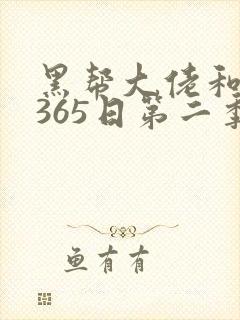 黑帮大佬和
365日第二季
鱼有有